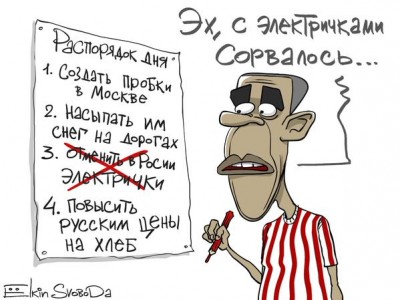 Эх, с электричками
сорвалось...
Распорядок дня
1. Создать пробки
в Москве
2. Насыпать им
снег на дорогах
3. Отменить в Росии
электрички
4. Повысить
русским цены
на хлеб
Ёlkin SvoboDa